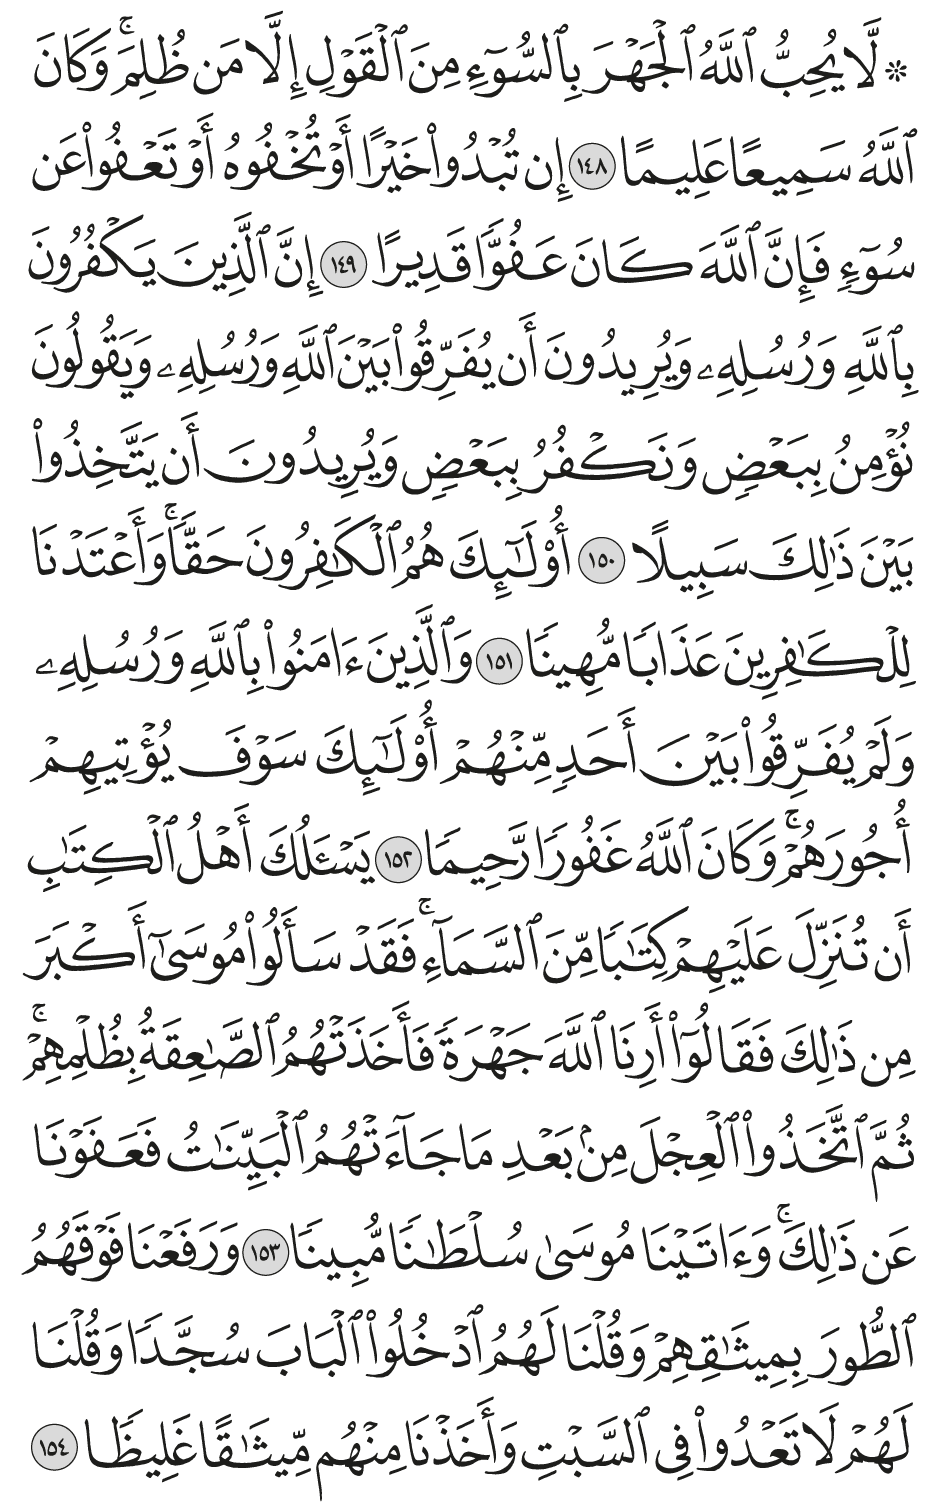 ۞ لَّا يُحِبُّ ٱللَّهُ ٱلْجَهْرَ بِٱلسُّوٓءِ مِنَ ٱلْقَوْلِ إِلَّا مَن ظُلِمَ ۚ وَكَانَ
ٱللَّهُ سَمِيعًا عَلِيمًا ١٤٨ إِن تُبْدُوا۟ خَيْرًا أَوْ تُخْفُوهُ أَوْ تَعْفُوا۟ عَن
سُوٓءٍ فَإِنَّ ٱللَّهَ كَانَ عَفُوًّا قَدِيرًا ١٤٩ إِنَّ ٱلَّذِينَ يَكْفُرُونَ
بِٱللَّهِ وَرُسُلِهِۦ وَيُرِيدُونَ أَن يُفَرِّقُوا۟ بَيْنَ ٱللَّهِ وَرُسُلِهِۦ وَيَقُولُونَ
نُؤْمِنُ بِبَعْضٍ وَنَكْفُرُ بِبَعْضٍ وَيُرِيدُونَ أَن يَتَّخِذُوا۟
بَيْنَ ذَٰلِكَ سَبِيلًا ١٥٠ أُو۟لَـٰٓئِكَ هُمُ ٱلْكَـٰفِرُونَ حَقًّا ۚ وَأَعْتَدْنَا
لِلْكَـٰفِرِينَ عَذَابًا مُّهِينًا ١٥١ وَٱلَّذِينَ ءَامَنُوا۟ بِٱللَّهِ وَرُسُلِهِۦ
وَلَمْ يُفَرِّقُوا۟ بَيْنَ أَحَدٍ مِّنْهُمْ أُو۟لَـٰٓئِكَ سَوْفَ يُؤْتِيهِمْ
أُجُورَهُمْ ۚ وَكَانَ ٱللَّهُ غَفُورًا رَّحِيمًا ١٥٢ يَسْـَٔلُكَ أَهْلُ ٱلْكِتَـٰبِ
أَن تُنَزِّلَ عَلَيْهِمْ كِتَـٰبًا مِّنَ ٱلسَّمَآءِ ۚ فَقَدْ سَأَلُوا۟ مُوسَىٰٓ أَكْبَرَ
مِن ذَٰلِكَ فَقَالُوٓا۟ أَرِنَا ٱللَّهَ جَهْرَةً فَأَخَذَتْهُمُ ٱلصَّـٰعِقَةُ بِظُلْمِهِمْ ۚ
ثُمَّ ٱتَّخَذُوا۟ ٱلْعِجْلَ مِنۢ بَعْدِ مَا جَآءَتْهُمُ ٱلْبَيِّنَـٰتُ فَعَفَوْنَا
عَن ذَٰلِكَ ۚ وَءَاتَيْنَا مُوسَىٰ سُلْطَـٰنًا مُّبِينًا ١٥٣ وَرَفَعْنَا فَوْقَهُمُ
ٱلطُّورَ بِمِيثَـٰقِهِمْ وَقُلْنَا لَهُمُ ٱدْخُلُوا۟ ٱلْبَابَ سُجَّدًا وَقُلْنَا
لَهُمْ لَا تَعْدُوا۟ فِى ٱلسَّبْتِ وَأَخَذْنَا مِنْهُم مِّيثَـٰقًا غَلِيظًا ١٥٤